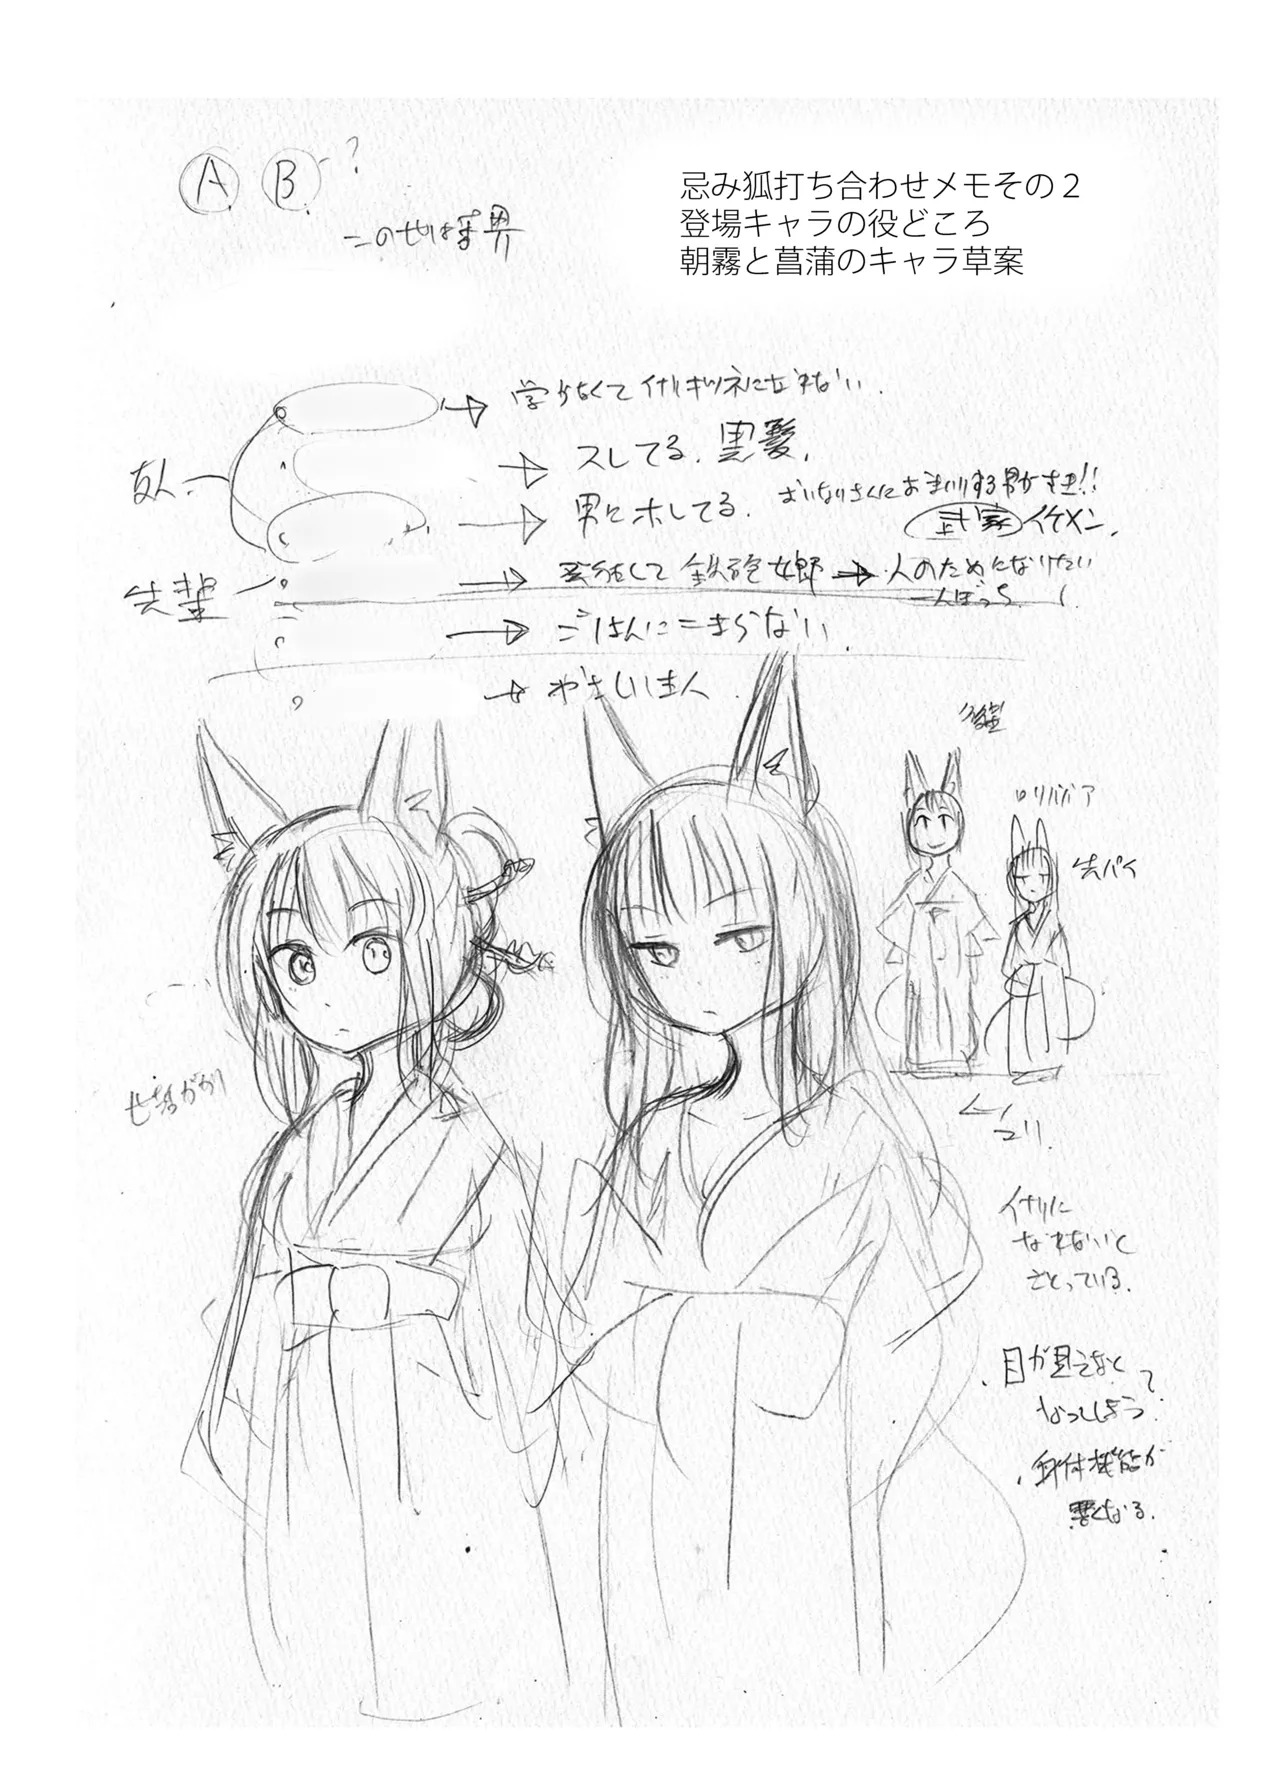 A B ?
忌み狐打ち合わせメモその２
登場キャラの役どころ
朝霧と菖蒲のキャラ草案
学がなくてイナリキツネになれない.
友人
スレてる. 黒髪.
男にホレてる.
おいなりさんにおまいりする男がすき!!
武家 イケメン.
先輩
鉄砲女郎 → 人のためになりたい
一人ぼっち
ごはんにこまらない.
やさしい主人
後輩
ロリババア
先パイ
世話がかり
イナリに
なれないと
さとっている.
目が見えなく
なってしまう?
身体機能が
悪くなる.